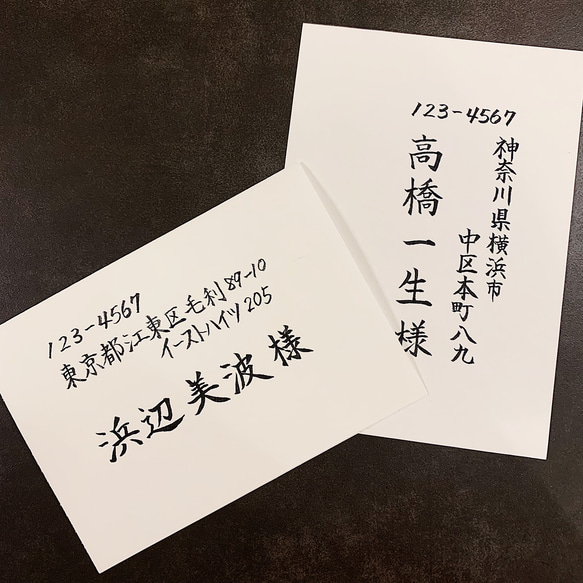 123-4567
東京都江東区毛利89-10
イーストハイツ205
浜辺美波様
123-4567
神奈川県横浜市
中区本町八九
高橋一生様